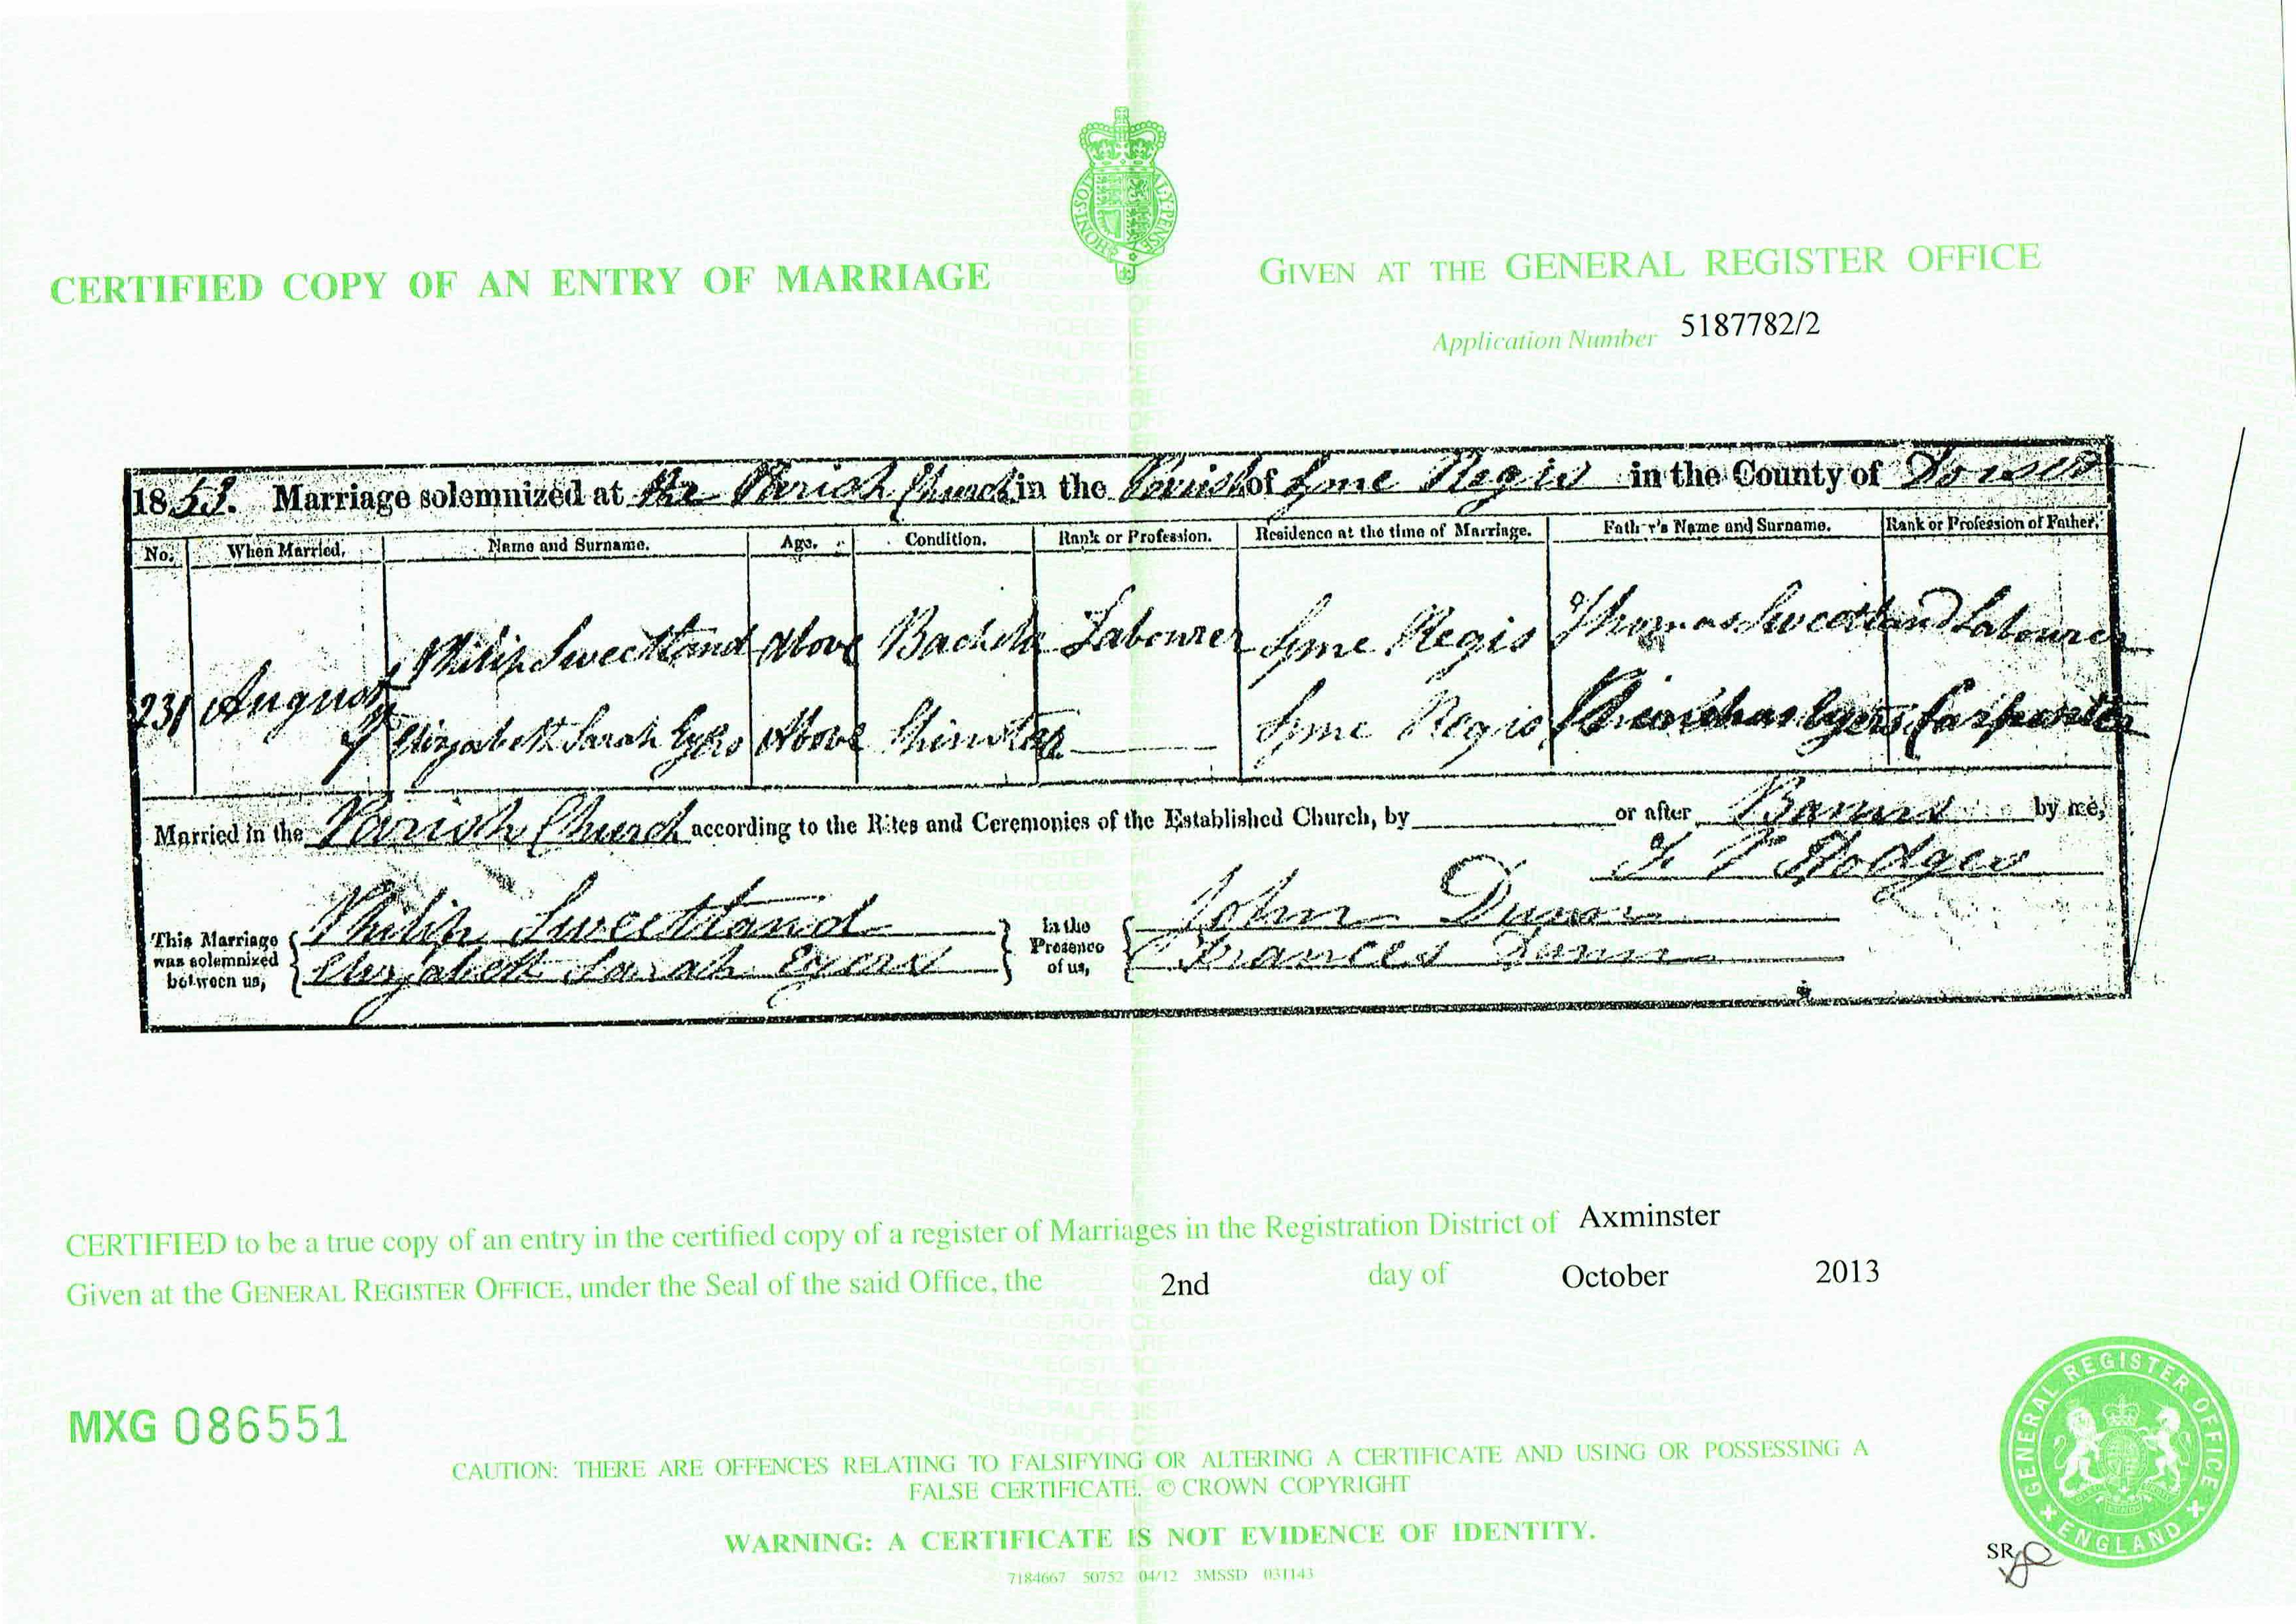 HONI·SOIT AL·Y·PENSE
CERTIFIED COPY OF AN ENTRY OF MARRIAGE
GIVEN AT THE GENERAL REGISTER OFFICE
Application Number 5187782/2
1853. Marriage solemnized at the Parish Church in the Parish of Lyme Regis in the County of Dorset
No. When Married. Name and Surname. Age. Condition. Rank or Profession. Residence at the time of Marriage. Father's Name and Surname. Rank or Profession of Father.
Philip Sweetland Above Bachelor Labourer Lyme Regis Thomas Sweetland Labourer
231 August
7 Elizabeth Sarah Eyers Above Spinster Lyme Regis Eyers Carpenter
Married in the Parish Church according to the Rites and Ceremonies of the Established Church, by or after Banns by me,
Hodges
This Marriage was solemnized between us, Philip Sweetland In the Presence of us, John Dunn
Elizabeth Sarah Eyers Frances Dunn
CERTIFIED to be a true copy of an entry in the certified copy of a register of Marriages in the Registration District of Axminster
Given at the GENERAL REGISTER OFFICE, under the Seal of the said Office, the 2nd day of October 2013
MXG 086551
CAUTION: THERE ARE OFFENCES RELATING TO FALSIFYING OR ALTERING A CERTIFICATE AND USING OR POSSESSING A
FALSE CERTIFICATE. © CROWN COPYRIGHT
WARNING: A CERTIFICATE IS NOT EVIDENCE OF IDENTITY.
7184667 50752 04/12 3MSSD 031143
GENERAL REGISTER OFFICE
ENGLAND
SR